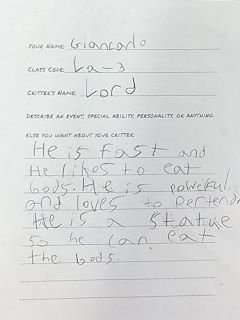 Your Name: Giancarlo
Class Code: La-3
Critter's Name: Lord
Describe an event, special ability, personality, or anything
else you want about your critter:
He is fast and
He likes to eat
bods. He is powerful
and loves to pertend
He is a statue
so he can eat
the bods.